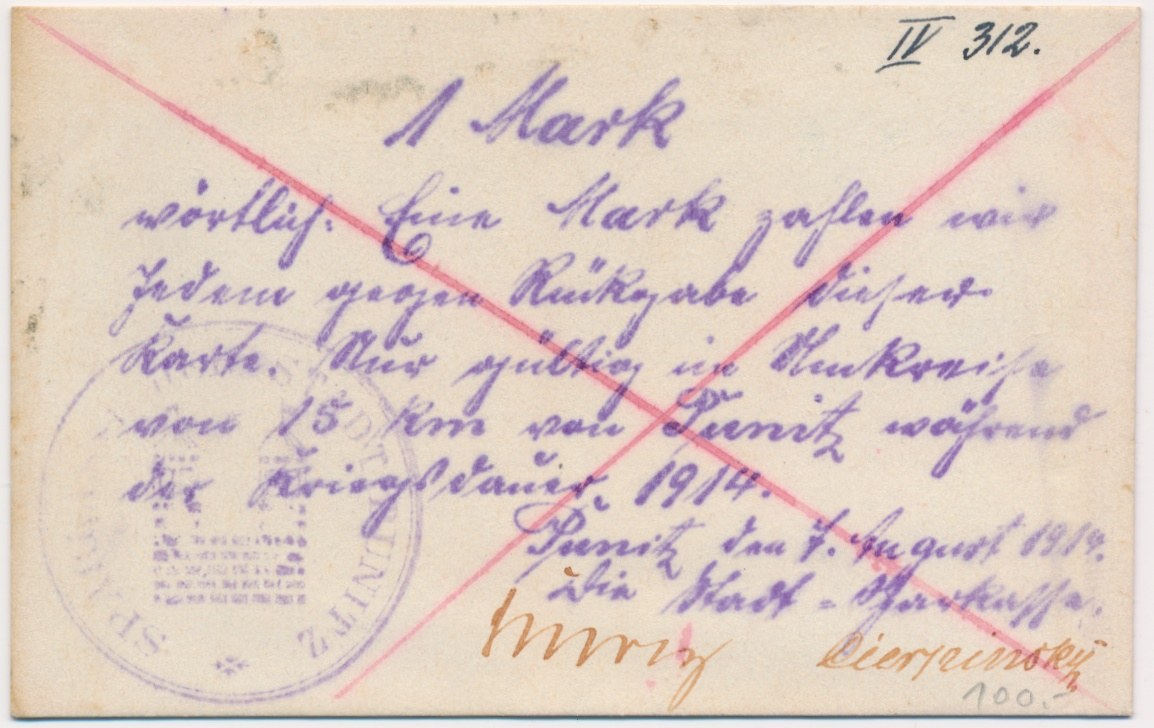 IV 312.
1 Mark
wörtlich: Eine Mark zahlen wir
Jedem gegen Rückgabe dieser
Karte. Nur gültig im Umkreise
von 15 km von Punitz während
der Kriegsdauer 1914.
Punitz den 7. August 1914.
Die Stadt-Sparkasse.
Cierpinsky
100.-
SPARKASSE STADT PUNITZ